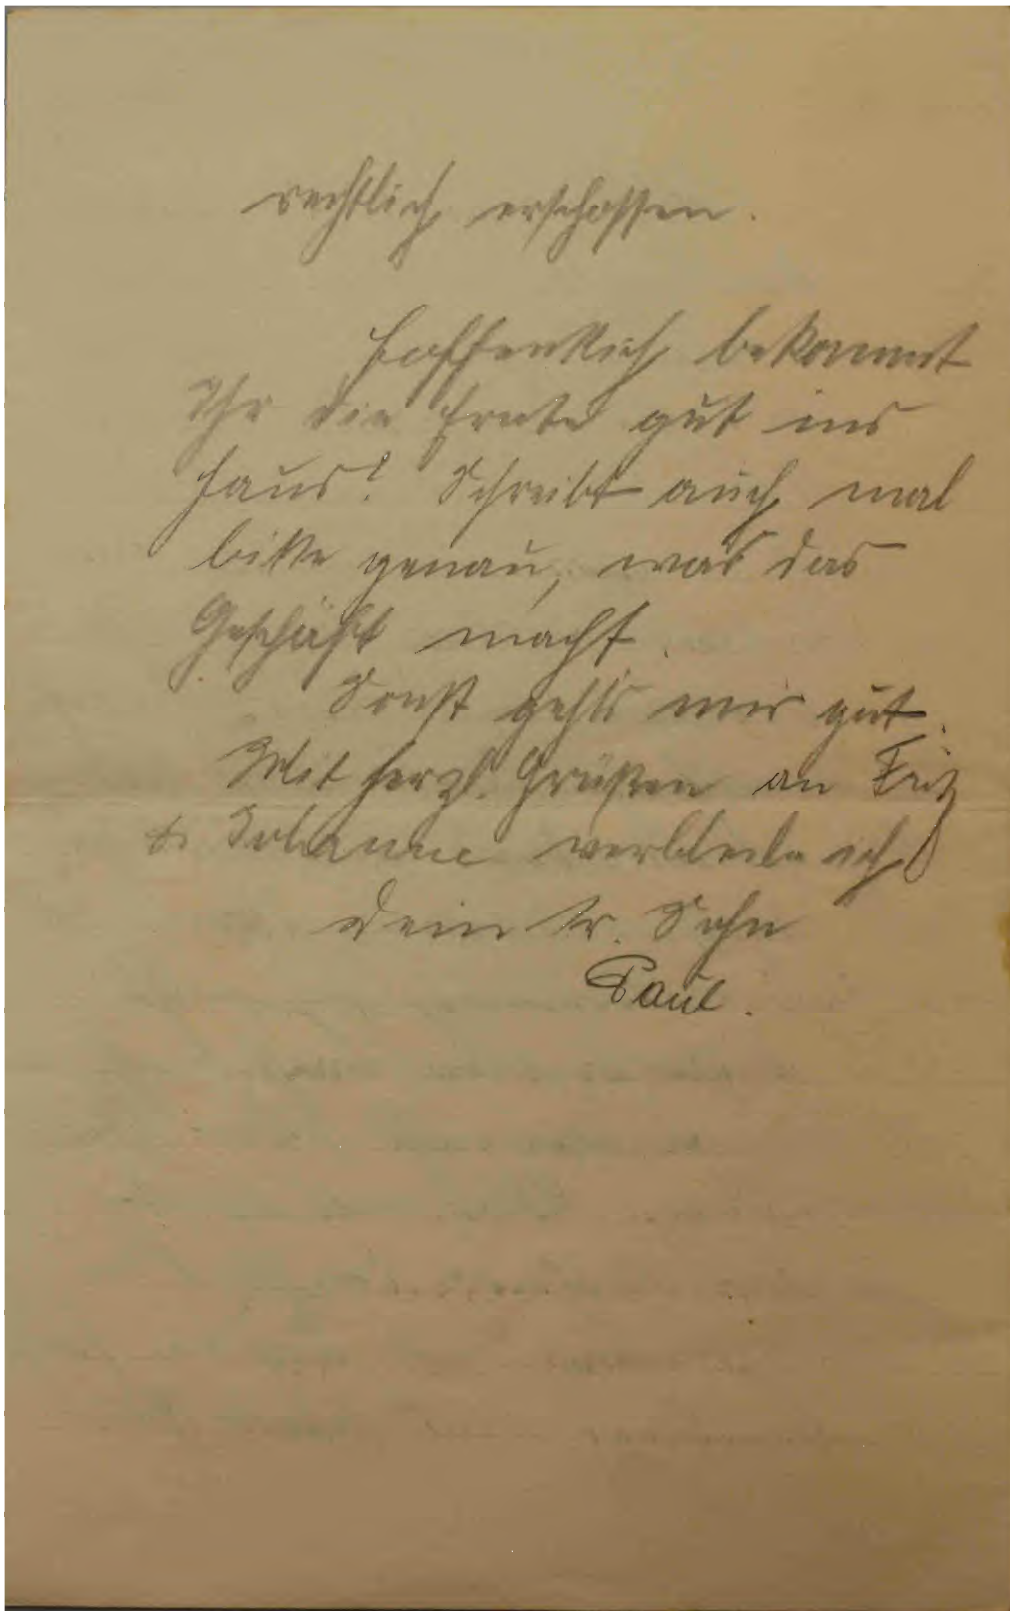 rechtlich erschossen.
Hoffentlich bekommt
Ihr die Ernte gut ins
Haus! Schreibt auch mal
bitte genau, was das
Geschäft macht.
Sonst gehts mir gut.
Mit herzl. Grüßen an Fritz
u. Johanne verbleibe ich
Dein tr. Sohn
Paul.